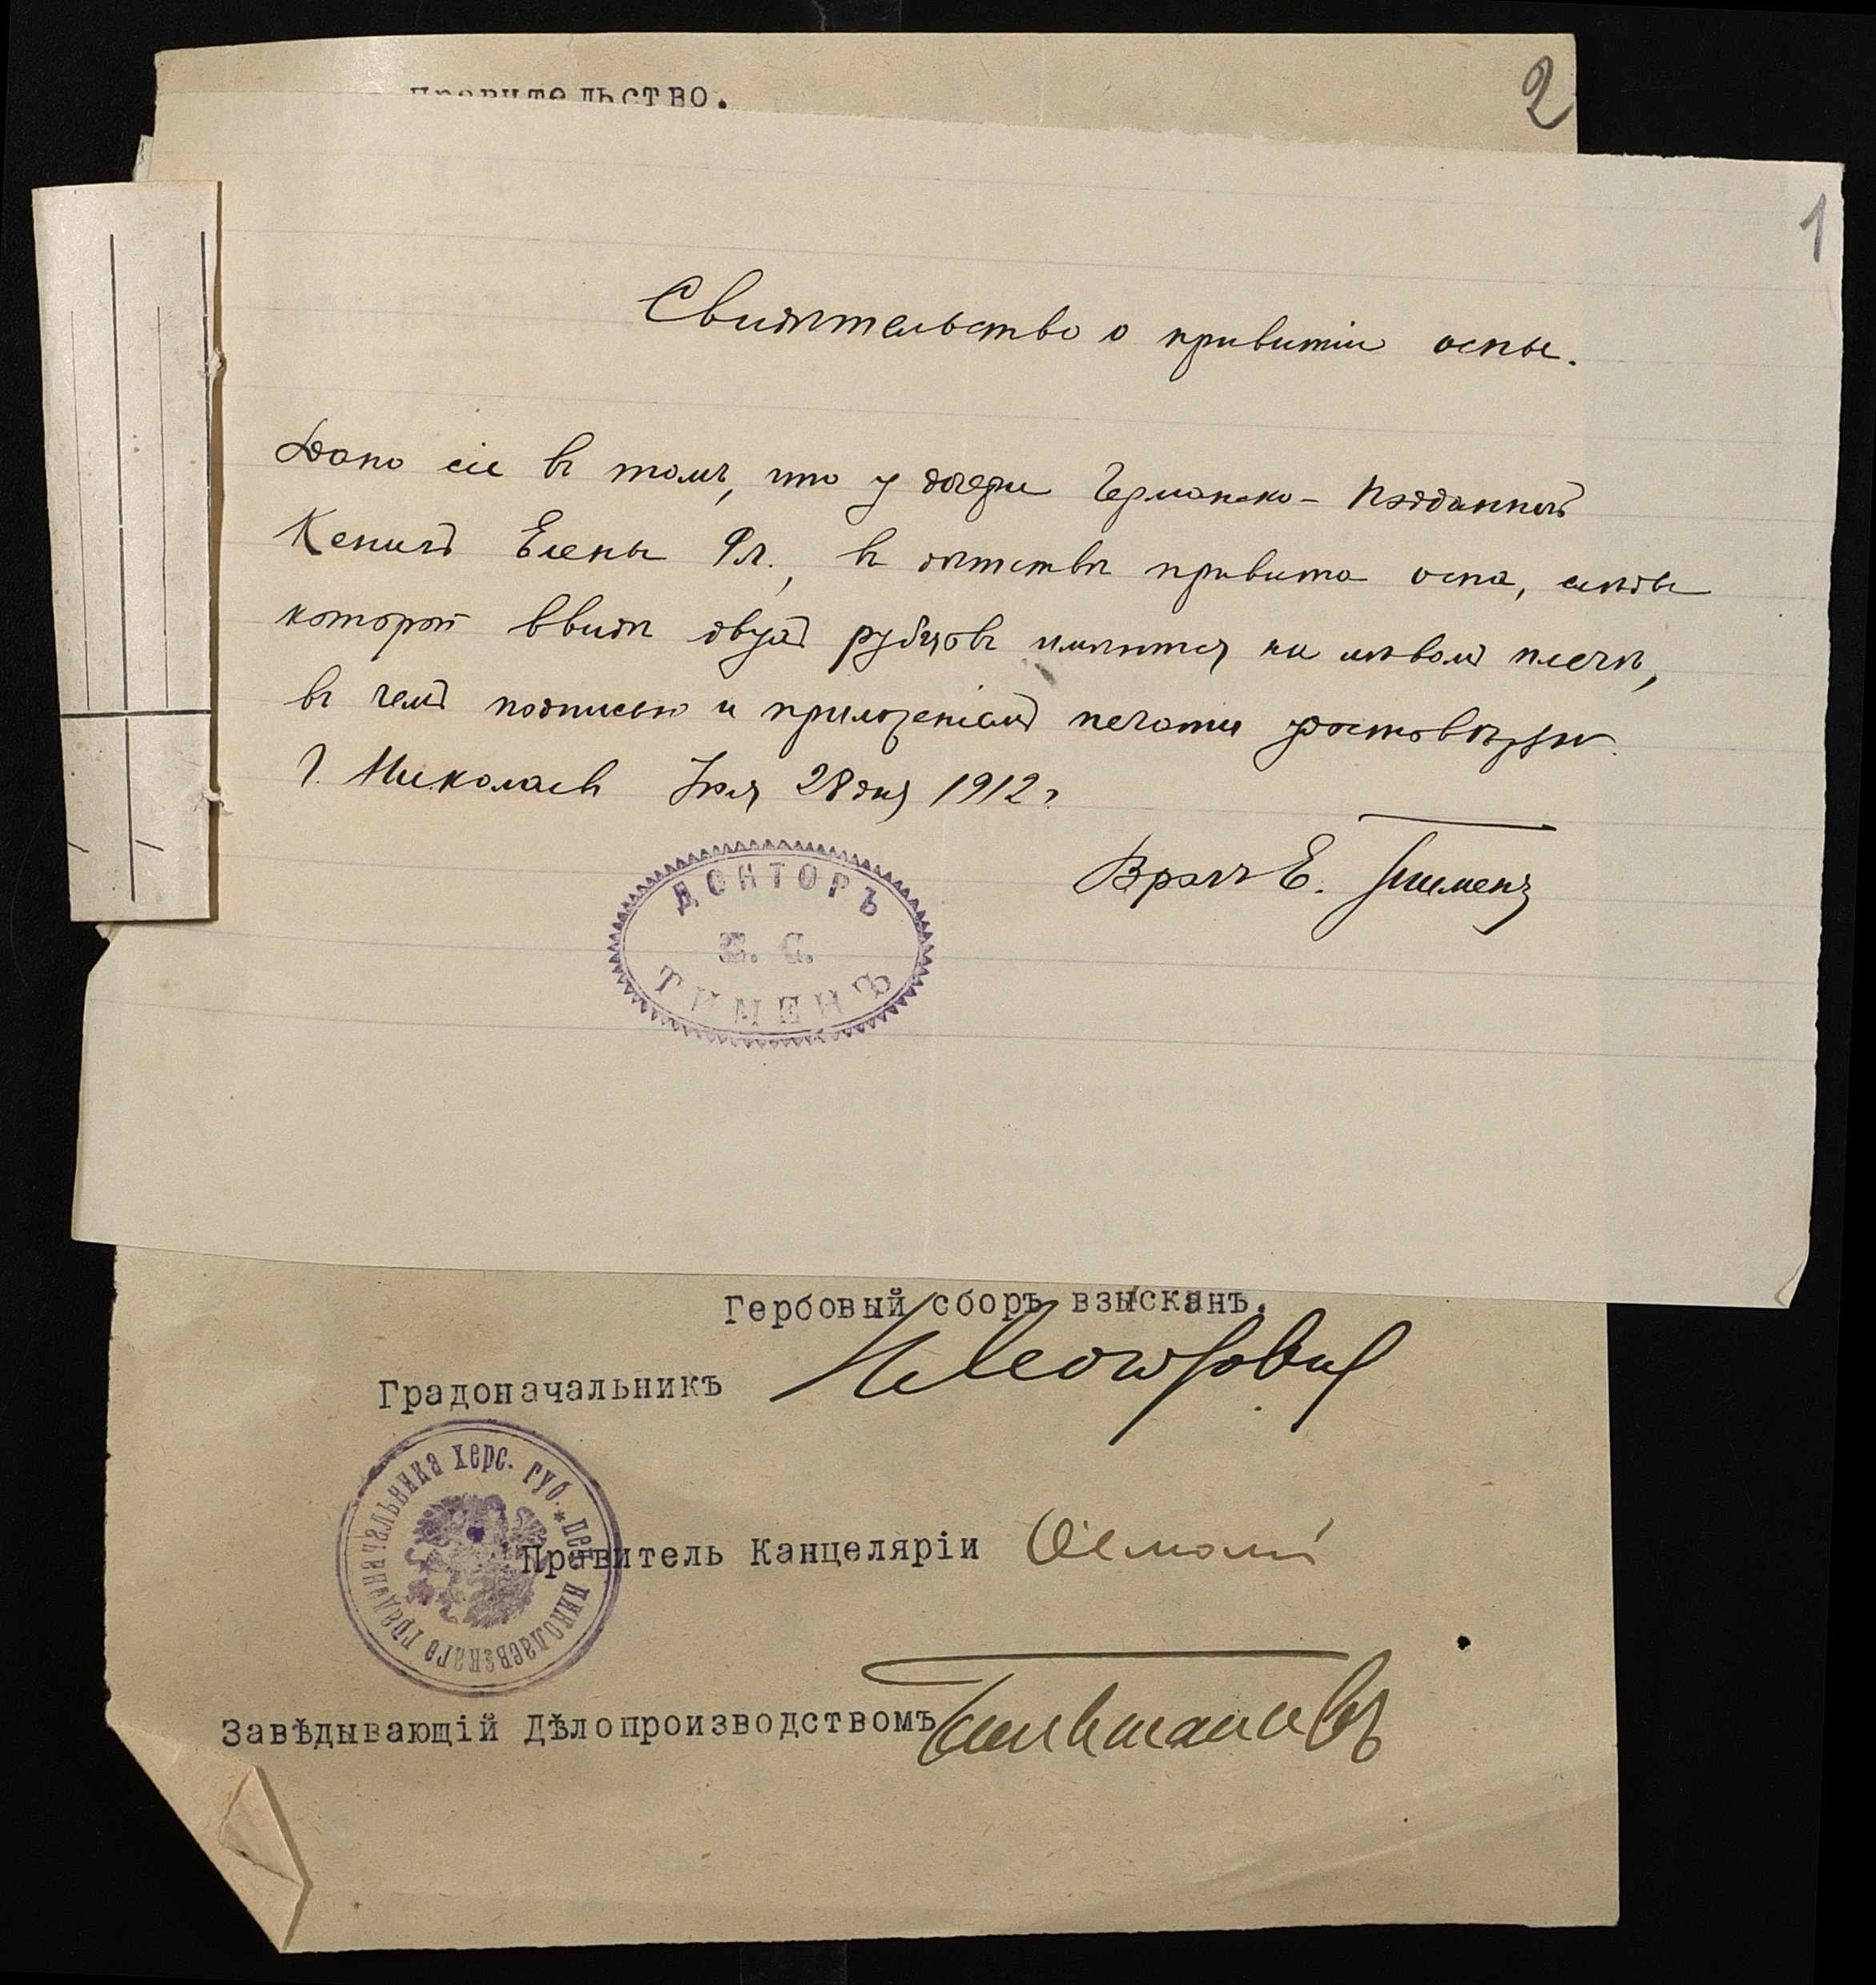 правительство.
2
1
Свидѣтельство о привитіи оспы.
Дано сіе въ томъ, что у дочери Германско-подданнаго
Кенигъ Елены 9 л., въ дѣтствѣ привита оспа, слѣды
которой ввидѣ двухъ рубцовъ имѣются на лѣвомъ плечѣ,
въ чемъ подписью и приложеніемъ печати удостовѣряю.
Г. Николаевъ Іюля 28 дня 1912 г.
Врачъ Е. Тименъ
ДОКТОРЪ
Е. С.
ТИМЕНЪ
Гербовый сборъ взысканъ.
Градоначальникъ
Печ. Николаевскаго градоначальника Херс. губ. *
Правитель Канцеляріи
Завѣдывающій Дѣлопроизводствомъ